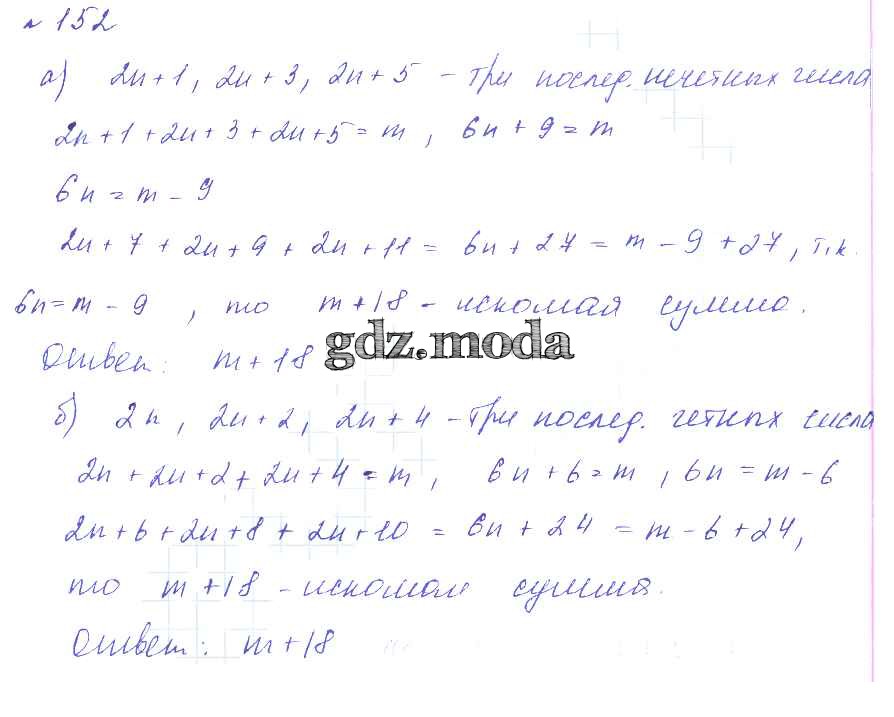 № 152
а) 2n+1, 2n+3, 2n+5 – три послед. нечетных числа
2n+1+2n+3+2n+5=m, 6n+9=m
6n=m-9
2n+7+2n+9+2n+11=6n+27=m-9+27, т.к.
6n=m-9, то m+18 – искомая сумма.
Ответ: m+18
gdz.moda
б) 2n, 2n+2, 2n+4 – три послед. четных числа
2n+2n+2+2n+4=m, 6n+6=m, 6n=m-6
2n+6+2n+8+2n+10=6n+24=m-6+24,
то m+18 – искомая сумма.
Ответ: m+18